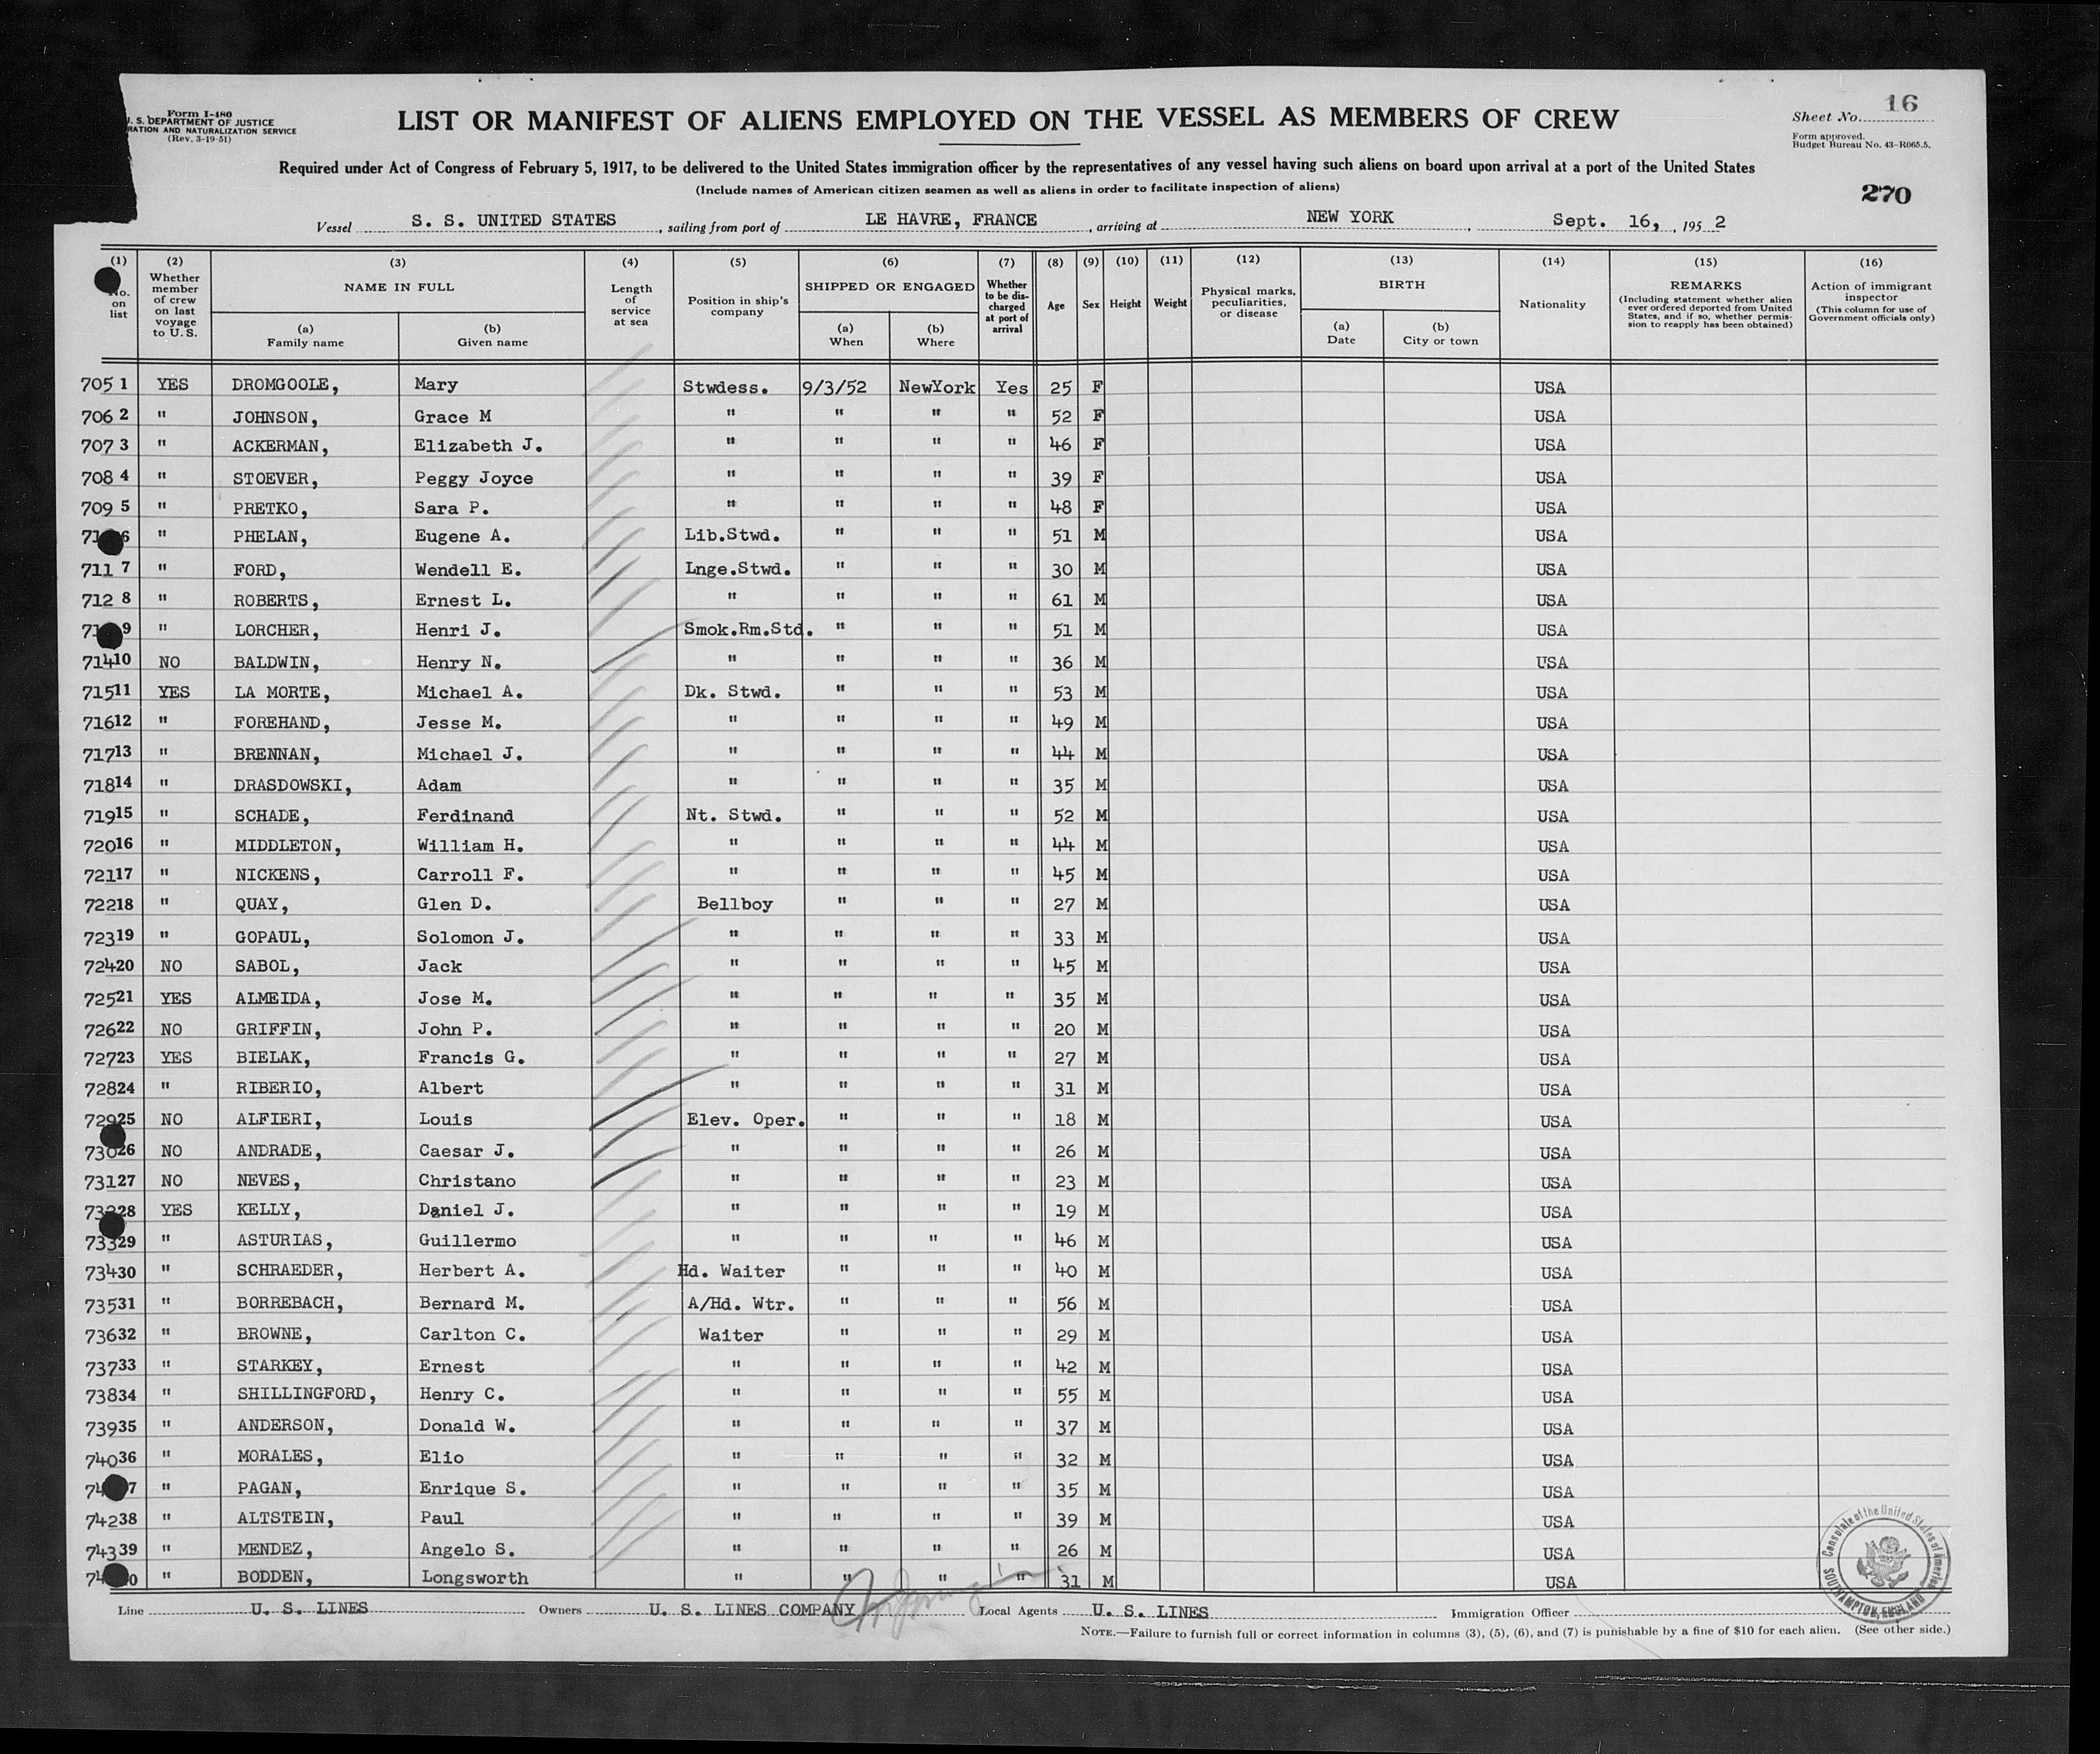 Form I-480
U. S. DEPARTMENT OF JUSTICE
RATION AND NATURALIZATION SERVICE
(Rev. 3-19-51)
LIST OR MANIFEST OF ALIENS EMPLOYED ON THE VESSEL AS MEMBERS OF CREW
Sheet No. 16
Form approved.
Budget Bureau No. 43-R065.5.
Required under Act of Congress of February 5, 1917, to be delivered to the United States immigration officer by the representatives of any vessel having such aliens on board upon arrival at a port of the United States
(Include names of American citizen seamen as well as aliens in order to facilitate inspection of aliens)
270
Vessel S. S. UNITED STATES, sailing from port of LE HAVRE, FRANCE, arriving at NEW YORK, Sept. 16, 1952
(1) No. on list
(2) Whether member of crew on last voyage to U. S.
(3) NAME IN FULL
(a) Family name
(b) Given name
(4) Length of service at sea
(5) Position in ship's company
(6) SHIPPED OR ENGAGED
(a) When
(b) Where
(7) Whether to be discharged at port of arrival
(8) Age
(9) Sex
(10) Height
(11) Weight
(12) Physical marks, peculiarities, or disease
(13) BIRTH
(a) Date
(b) City or town
(14) Nationality
(15) REMARKS (Including statement whether alien ever ordered deported from United States, and if so, whether permission to reapply has been obtained)
(16) Action of immigrant inspector (This column for use of Government officials only)
705 1 YES DROMGOOLE, Mary Stwdess. 9/3/52 NewYork Yes 25 F USA
706 2 " JOHNSON, Grace M " " " " 52 F USA
707 3 " ACKERMAN, Elizabeth J. " " " " 46 F USA
708 4 " STOEVER, Peggy Joyce " " " " 39 F USA
709 5 " PRETKO, Sara P. " " " " 48 F USA
71 6 " PHELAN, Eugene A. Lib.Stwd. " " " 51 M USA
711 7 " FORD, Wendell E. Lnge.Stwd. " " " 30 M USA
712 8 " ROBERTS, Ernest L. " " " " 61 M USA
71 9 " LORCHER, Henri J. Smok.Rm.Std. " " " 51 M USA
714 10 NO BALDWIN, Henry N. " " " " 36 M USA
715 11 YES LA MORTE, Michael A. Dk. Stwd. " " " 53 M USA
716 12 " FOREHAND, Jesse M. " " " " 49 M USA
717 13 " BRENNAN, Michael J. " " " " 44 M USA
718 14 " DRASDOWSKI, Adam " " " " 35 M USA
719 15 " SCHADE, Ferdinand Nt. Stwd. " " " 52 M USA
720 16 " MIDDLETON, William H. " " " " 44 M USA
721 17 " NICKENS, Carroll F. " " " " 45 M USA
722 18 " QUAY, Glen D. Bellboy " " " 27 M USA
723 19 " GOPAUL, Solomon J. " " " " 33 M USA
724 20 NO SABOL, Jack " " " " 45 M USA
725 21 YES ALMEIDA, Jose M. " " " " 35 M USA
726 22 NO GRIFFIN, John P. " " " " 20 M USA
727 23 YES BIELAK, Francis G. " " " " 27 M USA
728 24 " RIBERIO, Albert " " " " 31 M USA
729 25 NO ALFIERI, Louis Elev. Oper. " " " 18 M USA
730 26 NO ANDRADE, Caesar J. " " " " 26 M USA
731 27 NO NEVES, Christano " " " " 23 M USA
732 28 YES KELLY, Daniel J. " " " " 19 M USA
733 29 " ASTURIAS, Guillermo " " " " 46 M USA
734 30 " SCHRAEDER, Herbert A. Hd. Waiter " " " 40 M USA
735 31 " BORREBACH, Bernard M. A/Hd. Wtr. " " " 56 M USA
736 32 " BROWNE, Carlton C. Waiter " " " 29 M USA
737 33 " STARKEY, Ernest " " " " 42 M USA
738 34 " SHILLINGFORD, Henry C. " " " " 55 M USA
739 35 " ANDERSON, Donald W. " " " " 37 M USA
740 36 " MORALES, Elio " " " " 32 M USA
74 7 " PAGAN, Enrique S. " " " " 35 M USA
742 38 " ALTSTEIN, Paul " " " " 39 M USA
743 39 " MENDEZ, Angelo S. " " " " 26 M USA
74 0 " BODDEN, Longsworth " " " " 31 M USA
Consulate of the United States of America
SOUTHAMPTON, ENGLAND
Line U. S. LINES Owners U. S. LINES COMPANY Local Agents U. S. LINES Immigration Officer
NOTE.—Failure to furnish full or correct information in columns (3), (5), (6), and (7) is punishable by a fine of $10 for each alien. (See other side.)